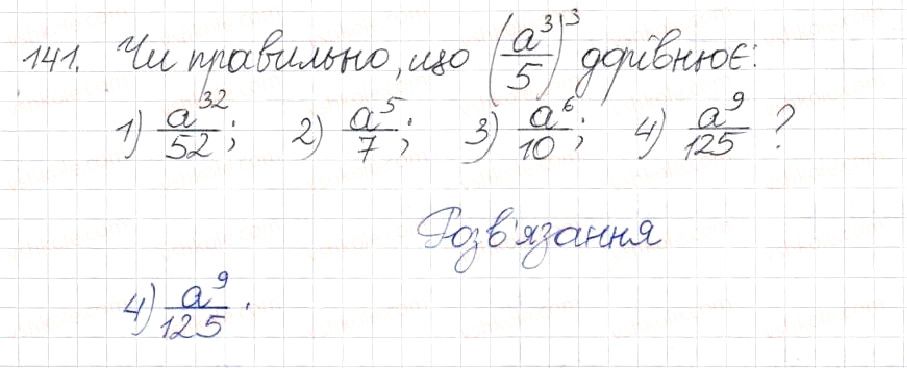 141. Чи правильно, що (a³/5)³ дорівнює:
1) a³²/52; 2) a⁵/7; 3) a⁶/10; 4) a⁹/125 ?
Розв'язання
4) a⁹/125.